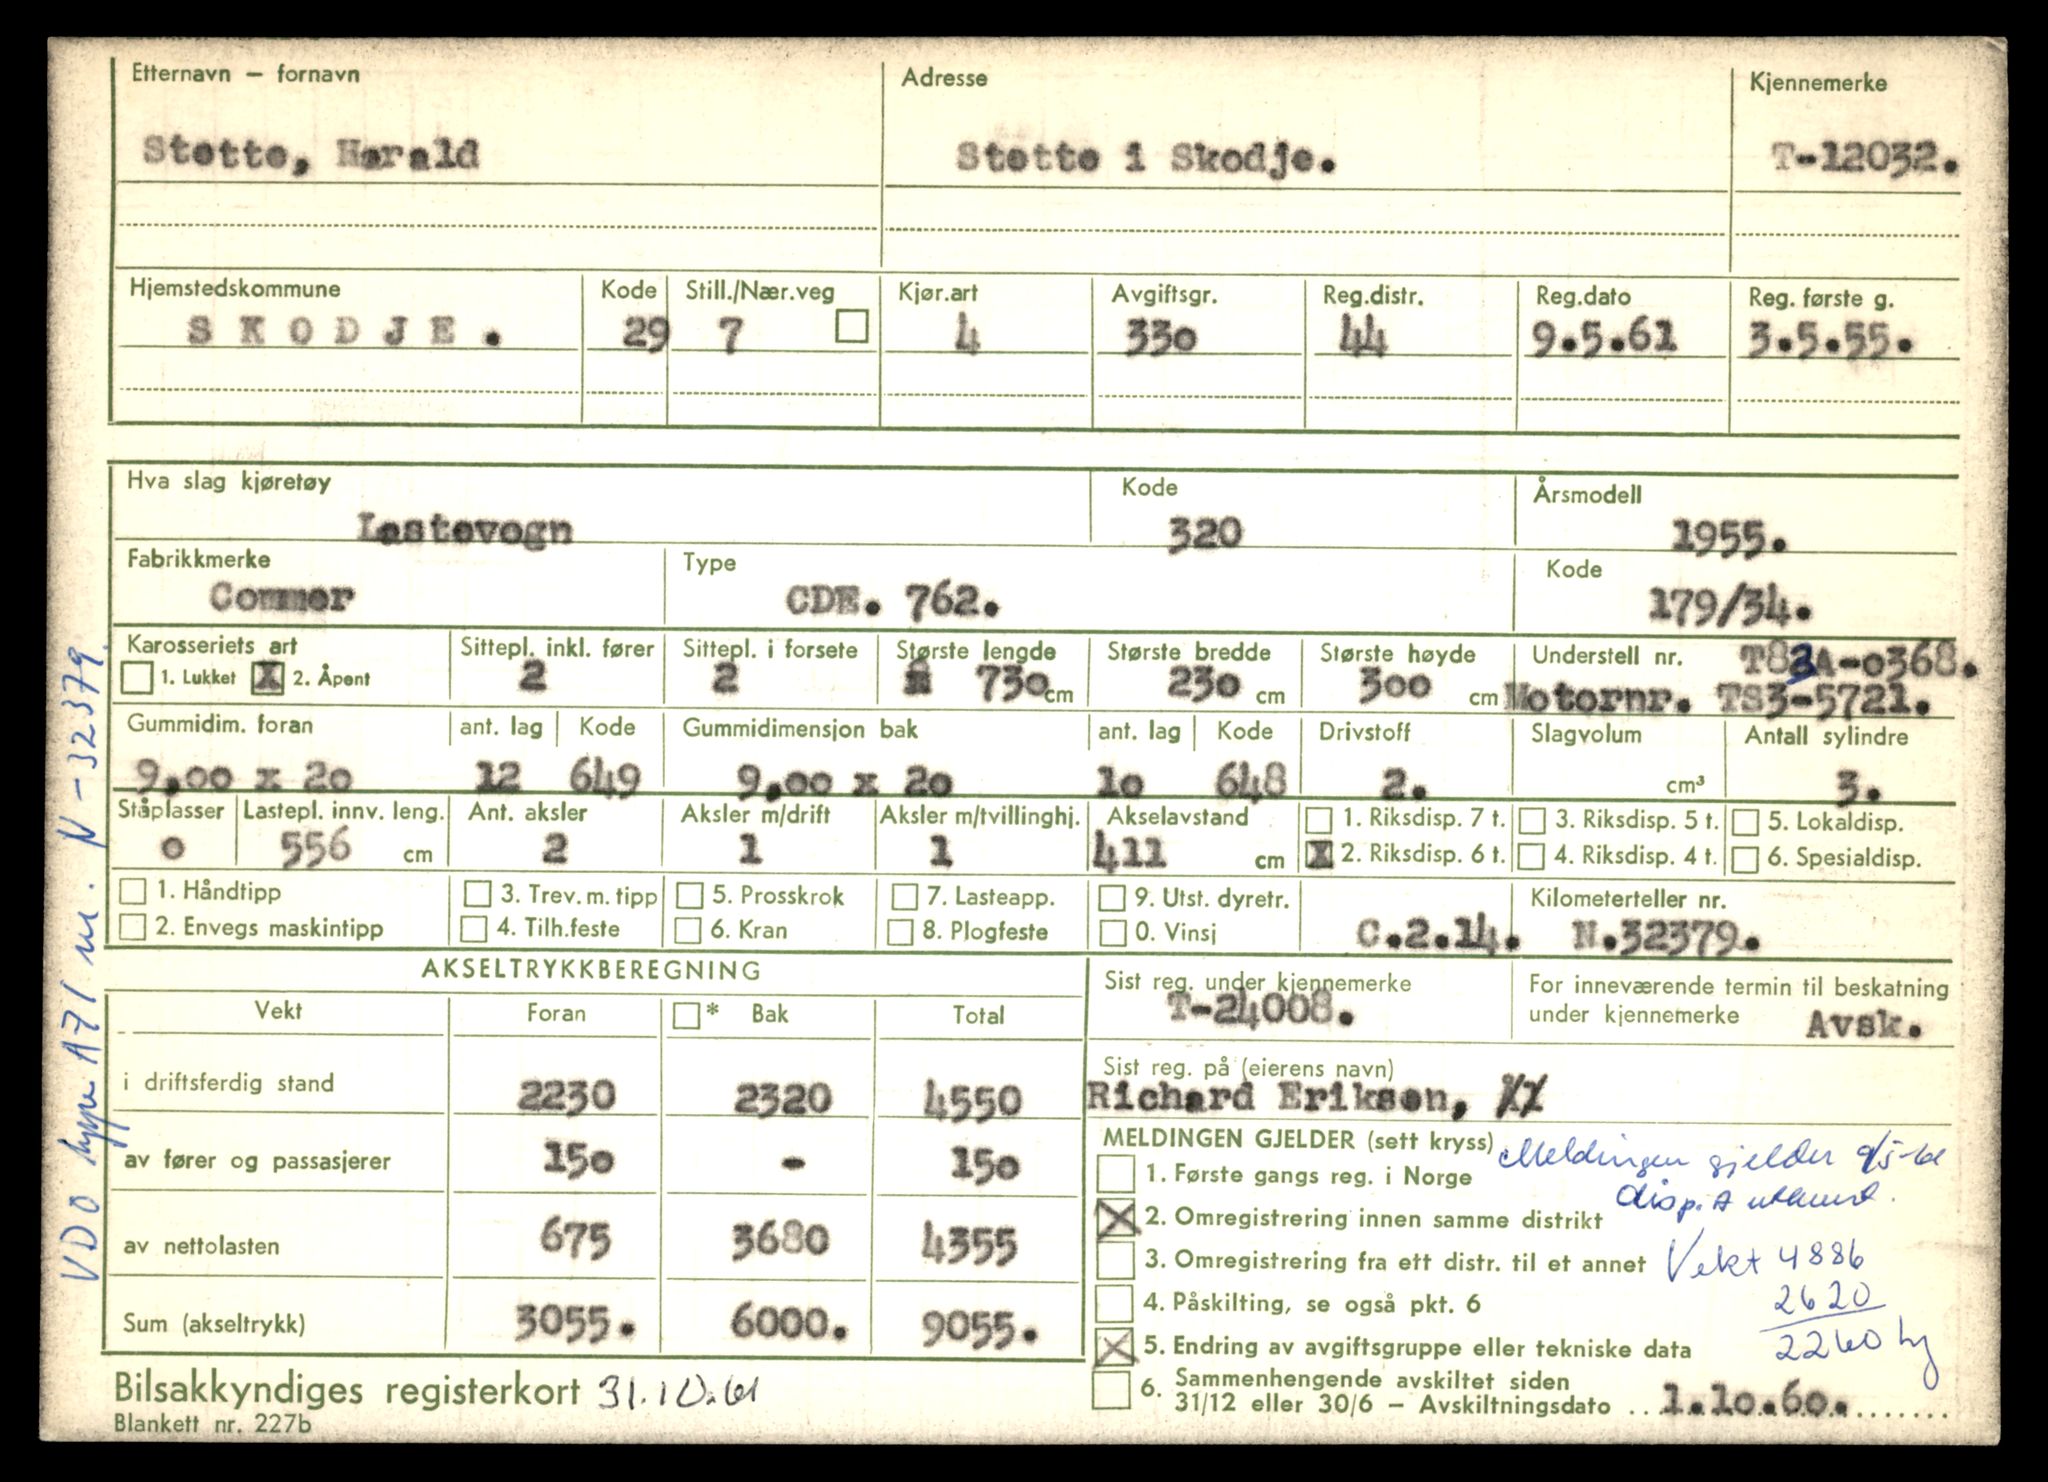 Etternavn – fornavn Adresse Kjennemerke
Stette, Harald Stette i Skodje. T-12032.
Hjemstedskommune Kode Still./Nær.veg Kjør.art Avgiftsgr. Reg.distr. Reg.dato Reg. første g.
SKODJE. 29 7 4 330 44 9.5.61 3.5.55.
Hva slag kjøretøy Kode Årsmodell
Lastevogn 320 1955.
Fabrikkmerke Type Kode
Commer CDE. 762. 179/34.
Karosseriets art Sittepl. inkl. fører Sittepl. i forsete Største lengde Største bredde Største høyde Understell nr. T83A-0368.
1. Lukket X 2. Åpent 2 2 730 cm 230 cm 300 cm Motornr. TS3-5721.
Gummidim. foran ant. lag Kode Gummidimensjon bak ant. lag Kode Drivstoff Slagvolum Antall sylindre
9,00 x 20 12 649 9,00 x 20 10 648 2. cm³ 3.
Ståplasser Lastepl. innv. leng. Ant. aksler Aksler m/drift Aksler m/tvillinghj. Akselavstand 1. Riksdisp. 7 t. 3. Riksdisp. 5 t. 5. Lokaldisp.
0 556 cm 2 1 1 411 cm X 2. Riksdisp. 6 t. 4. Riksdisp. 4 t. 6. Spesialdisp.
1. Håndtipp 3. Trev. m. tipp 5. Prosskrok 7. Lasteapp. 9. Utst. dyretr. Kilometerteller nr.
2. Envegs maskintipp 4. Tilh.feste 6. Kran 8. Plogfeste 0. Vinsj C.2.14. N.32379.
AKSELTRYKKBEREGNING
Vekt Foran * Bak Total
i driftsferdig stand 2230 2320 4550
av fører og passasjerer 150 - 150
av nettolasten 675 3680 4355
Sum (akseltrykk) 3055. 6000. 9055.
Sist reg. under kjennemerke
T-24008.
For inneværende termin til beskatning
under kjennemerke Avsk.
Sist reg. på (eierens navn)
Richard Eriksen,
MELDINGEN GJELDER (sett kryss)
Meldingen gjelder 9/5-61
1. Første gangs reg. i Norge
disp. A
X 2. Omregistrering innen samme distrikt
3. Omregistrering fra ett distr. til et annet
Vekt 4886
4. Påskilting, se også pkt. 6
2620
X 5. Endring av avgiftsgruppe eller tekniske data
2260 kg
6. Sammenhengende avskiltet siden
31/12 eller 30/6 – Avskiltningsdato 1.10.60.
Bilsakkyndiges registerkort 31.10.61
Blankett nr. 227b
VDO type A71 nr. N-32379.